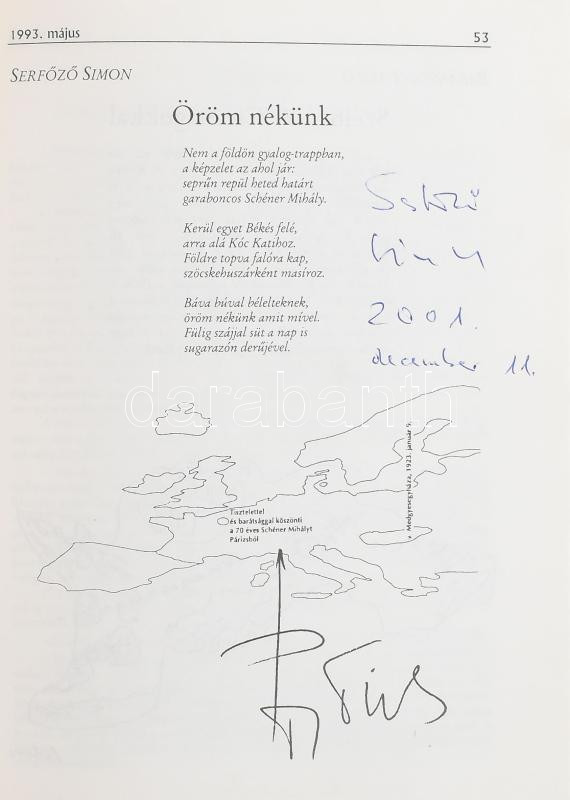 1993. május 53
SERFŐZŐ SIMON
Öröm nékünk
Nem a földön gyalog-trappban,
a képzelet az ahol jár:
seprűn repül heted határt
garaboncos Schéner Mihály.
Kerül egyet Békés felé,
arra alá Kóc Katihoz.
Földre topva falóra kap,
szöcskehuszárként masíroz.
Báva búval bélelteknek,
öröm nékünk amit mível.
Fülig szájjal süt a nap is
sugarazón derűjével.
2001.
december 11.
darabanth
Medgyesegyháza, 1923. január 9.
Tisztelettel
és barátsággal köszönti
a 70 éves Schéner Mihályt
Párizsból